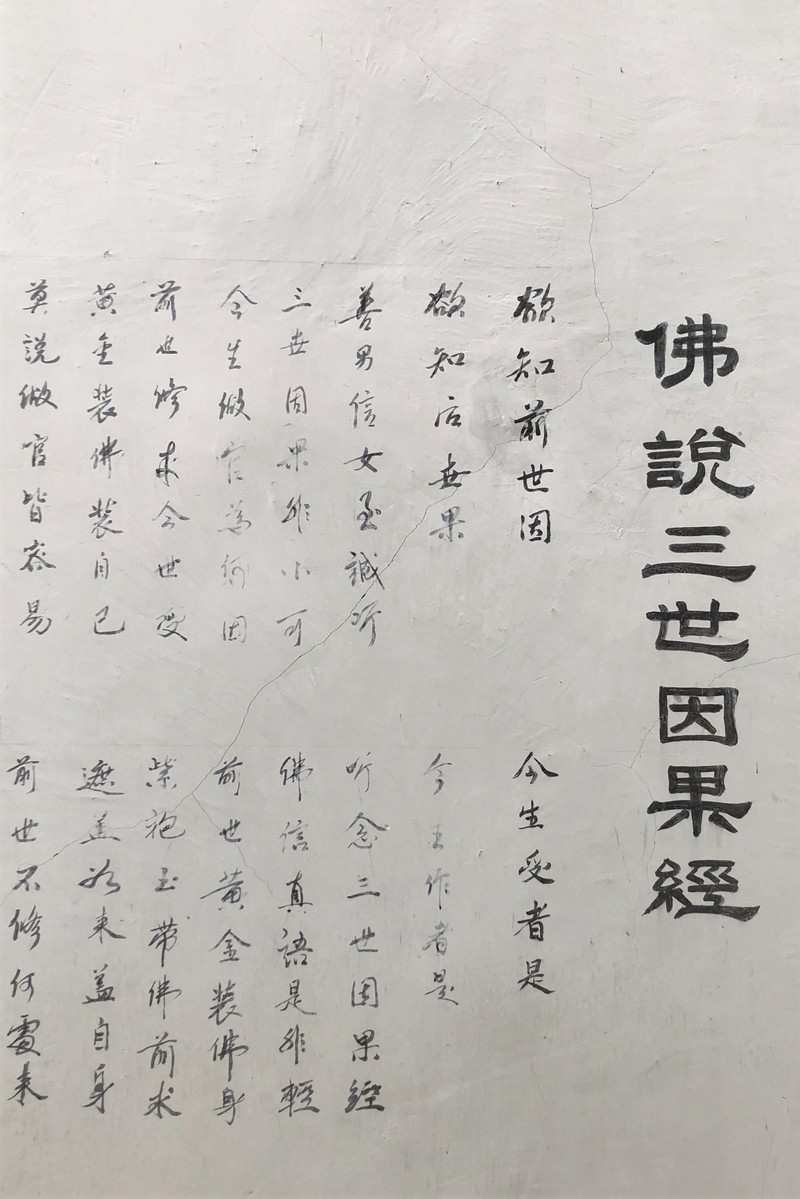 佛說三世因果經
欲知前世因 今生受者是
欲知后世果 今生作者是
善男信女至誠听 听念三世因果經
三世因果非小可 佛信真語是非輕
今生做官為何因 前世黃金装佛身
前世修来今世受 紫袍玉带佛前求
黃金装佛装自己 遮盖如来盖自身
莫說做官皆容易 前世不修何處来